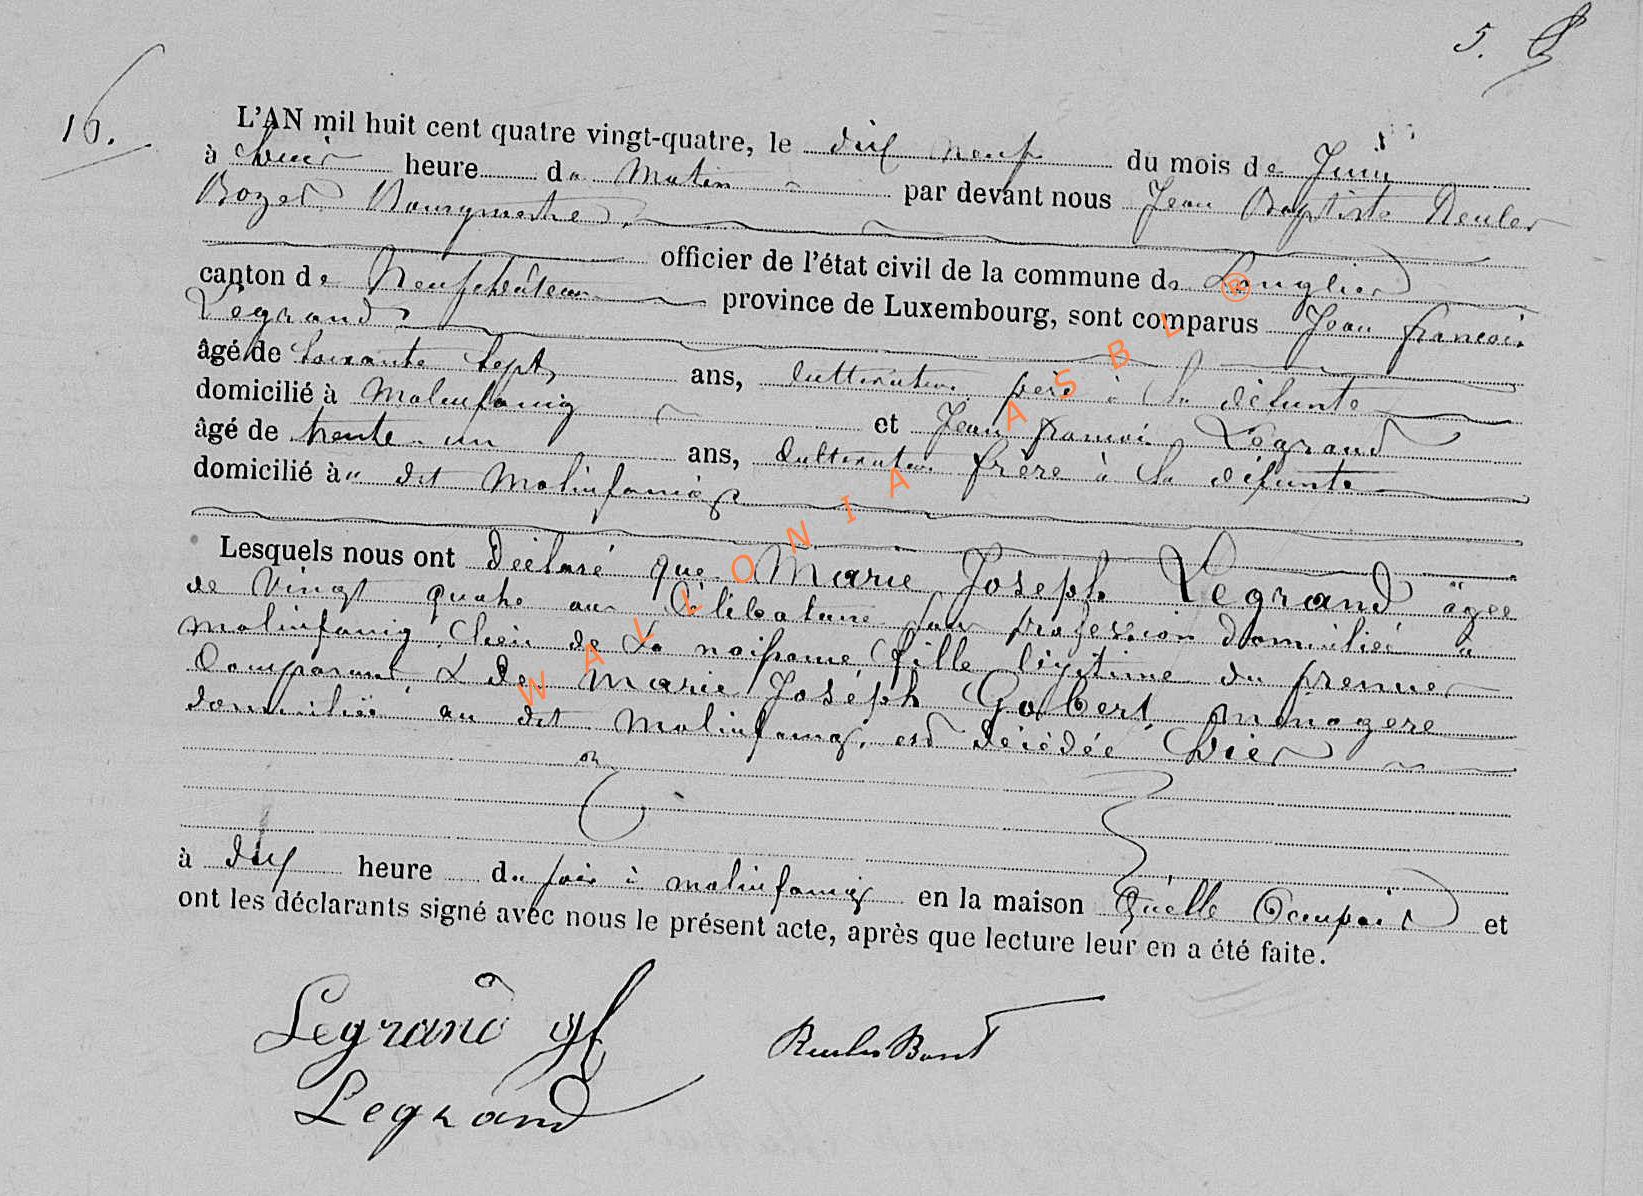 5.
16.
L'AN mil huit cent quatre vingt-quatre, le dix neuf du mois de Juin
à huit heure du Matin par devant nous Jean Baptiste Reuler
Bozet Bourgmestre
officier de l'état civil de la commune de Longlier
canton de Neufchâteau province de Luxembourg, sont comparus Jean françois
Legrand
âgé de Soixante Sept ans, Cultivateur père à la défunte
domicilié à Molinfaing et Jean françois Legrand
âgé de trente un ans, Cultivateur frère à la défunte
domicilié à u dit Molinfaing
Lesquels nous ont Déclaré que Marie Joseph Legrand âgée
de Vingt quatre ans Célibataire Sans profession domiciliée à
Molinfaing lieu de Sa naissance fille légitime du premier
Comparant & de Marie Joseph Gobert ménagère
domiciliée au dit Molinfaing, est décédée hier
à dix heure du soir à molinfaing en la maison qu'elle Occupait et
ont les déclarants signé avec nous le présent acte, après que lecture leur en a été faite.
Legrand jf
Legrand
WALLONIA ASBL ®